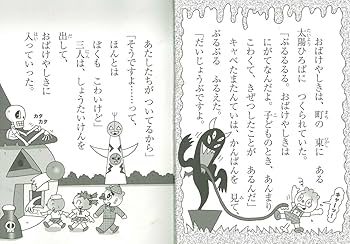 おばけやしきは、町の東にある
太陽ひろばに つくられていた。
「ぶるるるる。おばけやしきは
にがてなんだよ。子どものとき、あんまり
こわくて、きぜつしたことが あるんだ」
キャベたまたんていは、かんばんを 見て
ぶるぶる ふるえた。
「だいじょうぶですよ。
あたしたちが ついてるから」
「そうですよ……って、
ほんとは
ぼくも こわいけど」
三人は、しょうたいけんを
出して、
おばけやしきに
入っていった。
カタ
カタ